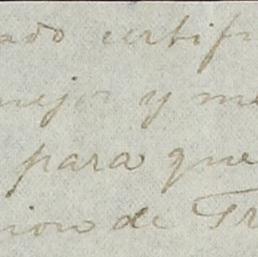 ado certifi
mejor y me
para que
cion de Tr